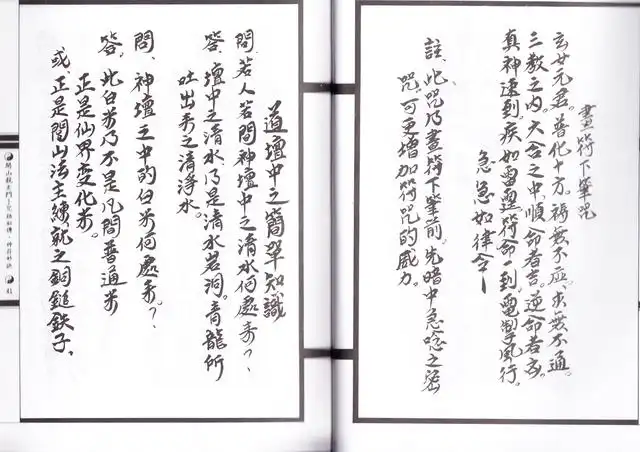 畫符下筆咒
玄女元君。普化十方。禱無不應。求無不通。
三教之內。六合之中。順命者吉。逆命者亡。
真神速到。疾如雷靈。符命一到。電掣風行。
急急如律令
註、此咒乃畫符下筆前。先暗中急唸之密
咒。可更增加符咒的威力。
道壇中之簡單知識
問、若人若問神壇中之清水何處來?、
答、壇中之清水乃是清水岩洞。青龍所
吐出來之清淨水。
問、神壇之中的白米何處來?、
答、此白米乃不是凡間普通米
正是仙界變化米。
或正是閭山法主練就之銅鎚鉄子、